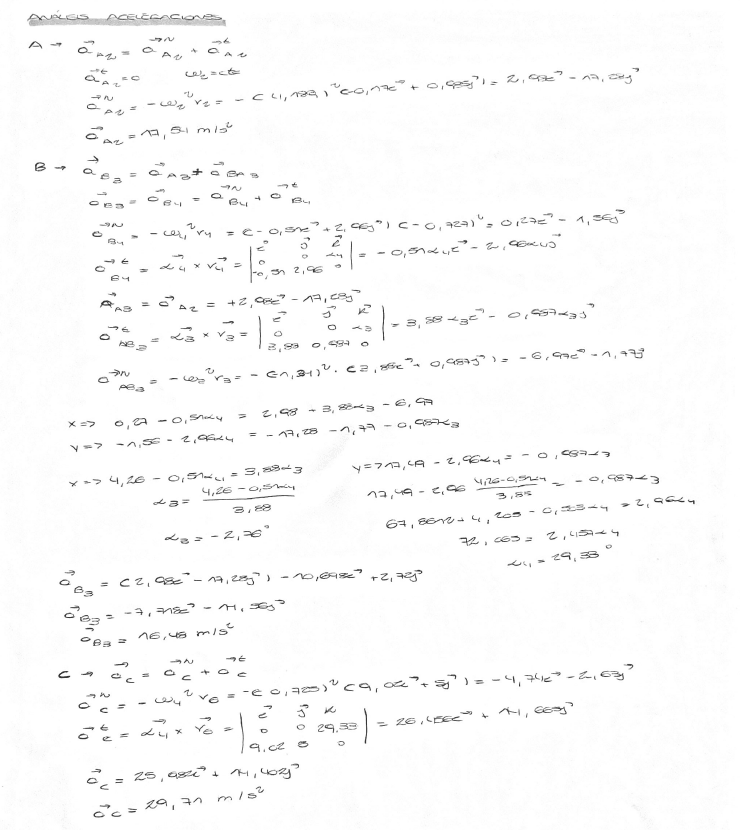 ANÁLISIS ACELERACIONES
A → a⃗_A2 = a⃗^N_A2 + a⃗^t_A2
a⃗^t_A2 = 0 ω2 = cte
a⃗^N_A2 = -ω2² r2 = -(4,188)² (-0,17i⃗ + 0,985j⃗) = 2,98i⃗ - 17,28j⃗
a⃗_A2 = 17,54 m/s²
B → a⃗_B3 = a⃗_A3 + a⃗_BA3
a⃗_B3 = a⃗_B4 = a⃗^N_B4 + a⃗^t_B4
a⃗^N_B4 = -ω4² r4 = (-0,51i⃗ + 2,96j⃗) (-0,727)² = 0,27i⃗ - 1,56j⃗
a⃗^t_B4 = α⃗4 × r⃗4 = | i⃗ j⃗ k⃗ | 0 0 α4 | -0,51 2,96 0 | = -0,51α4i⃗ - 2,96α4j⃗
a⃗_A3 = a⃗_A2 = +2,98i⃗ - 17,28j⃗
a⃗^t_AB3 = α⃗3 × r⃗3 = | i⃗ j⃗ k⃗ | 0 0 α3 | 3,88 0,987 0 | = 3,88α3i⃗ - 0,987α3j⃗
a⃗^N_AB3 = -ω3² r3 = -(1,34)² · (3,88i⃗ + 0,987j⃗) = -6,97i⃗ - 1,77j⃗
x => 0,27 - 0,51α4 = 2,98 + 3,88α3 - 6,97
y => -1,56 - 2,96α4 = -17,28 - 1,77 - 0,987α3
x => 4,26 - 0,51α4 = 3,88α3 y => 17,49 - 2,96α4 = -0,987α3
α3 = (4,26 - 0,51α4) / 3,88 17,49 - 2,96 (4,26 - 0,51α4) / 3,88 = -0,987α3
α3 = -2,76° 67,8612 + 4,205 - 0,503α4 = 2,96α4
72,065 = 2,457α4
α4 = 29,33°
a⃗_B3 = (2,98i⃗ - 17,28j⃗) - 10,698i⃗ + 2,72j⃗
a⃗_B3 = -7,718i⃗ - 14,56j⃗
a⃗_B3 = 16,48 m/s²
C → a⃗_C = a⃗^N_C + a⃗^t_C
a⃗^N_C = -ω4² r6 = -(0,725)² (9,02i⃗ + 5j⃗) = -4,74i⃗ - 2,63j⃗
a⃗^t_C = α⃗4 × r⃗6 = | i⃗ j⃗ k | 0 0 29,33 | 9,02 5 0 | = 26,456i⃗ + 14,665j⃗
a⃗_C = 25,982i⃗ + 14,402j⃗
a⃗_C = 29,71 m/s²